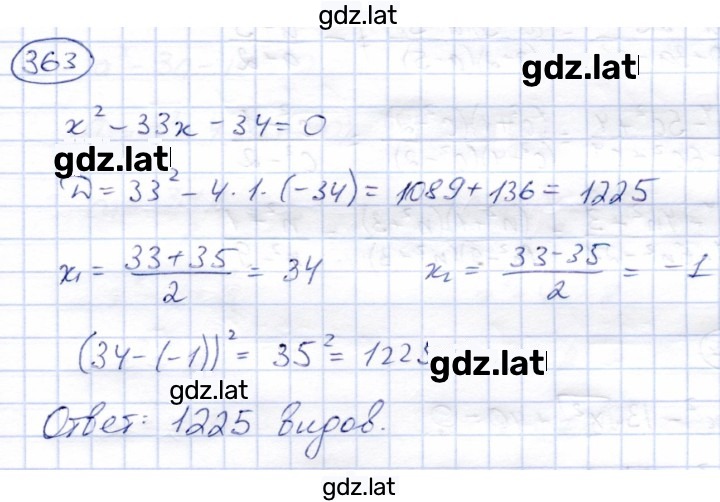 gdz.lat
363
gdz.lat
x² - 33x - 34 = 0
gdz.lat
D = 33² - 4·1·(-34) = 1089 + 136 = 1225
x₁ = (33+35)/2 = 34    x₂ = (33-35)/2 = -1
(34-(-1))² = 35² = 122
gdz.lat
gdz.lat
Ответ: 1225 видов.
gdz.lat